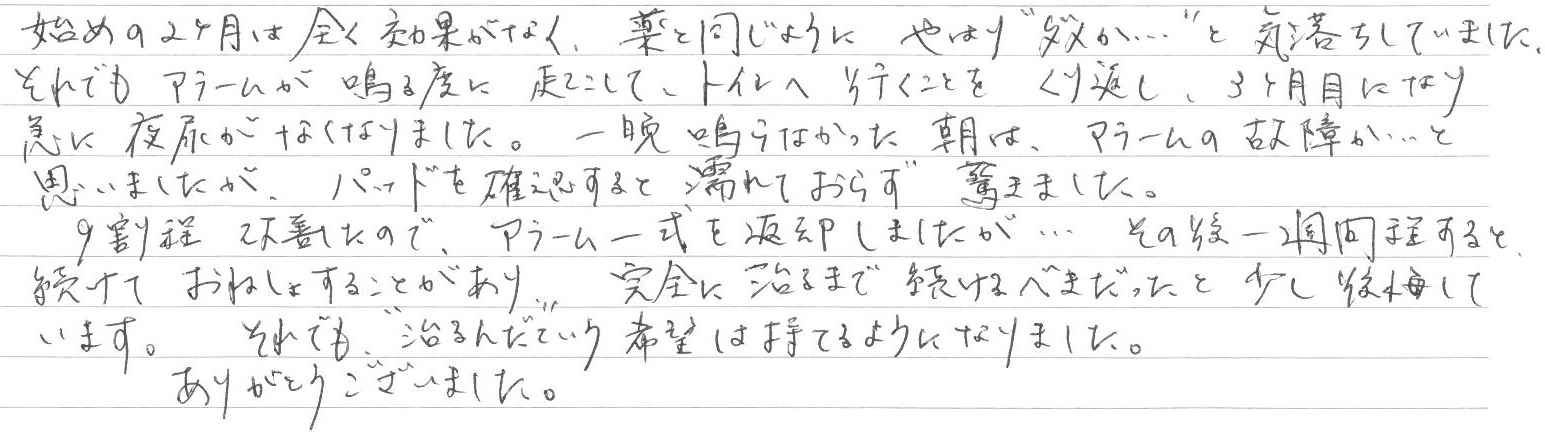 始めの2ヶ月は全く効果がなく、薬と同じように やはり"ダメか…"と気落ちしていました。
それでも アラームが 鳴る度に 起こして、トイレへ 行くことを くり返し、3ヶ月目になり
急に 夜尿が なくなりました。一晩 鳴らなかった 朝は、アラームの 故障か…と
思いましたが、パッドを 確認すると 濡れておらず 驚きました。
9割程 改善したので、アラーム一式を返却しましたが… その後一週間程すると、
続けて おねしょすることがあり、完全に 治るまで 続けるべきだったと 少し 後悔して
います。 それでも、"治るんだ"という 希望は持てるようになりました。
ありがとうございました。